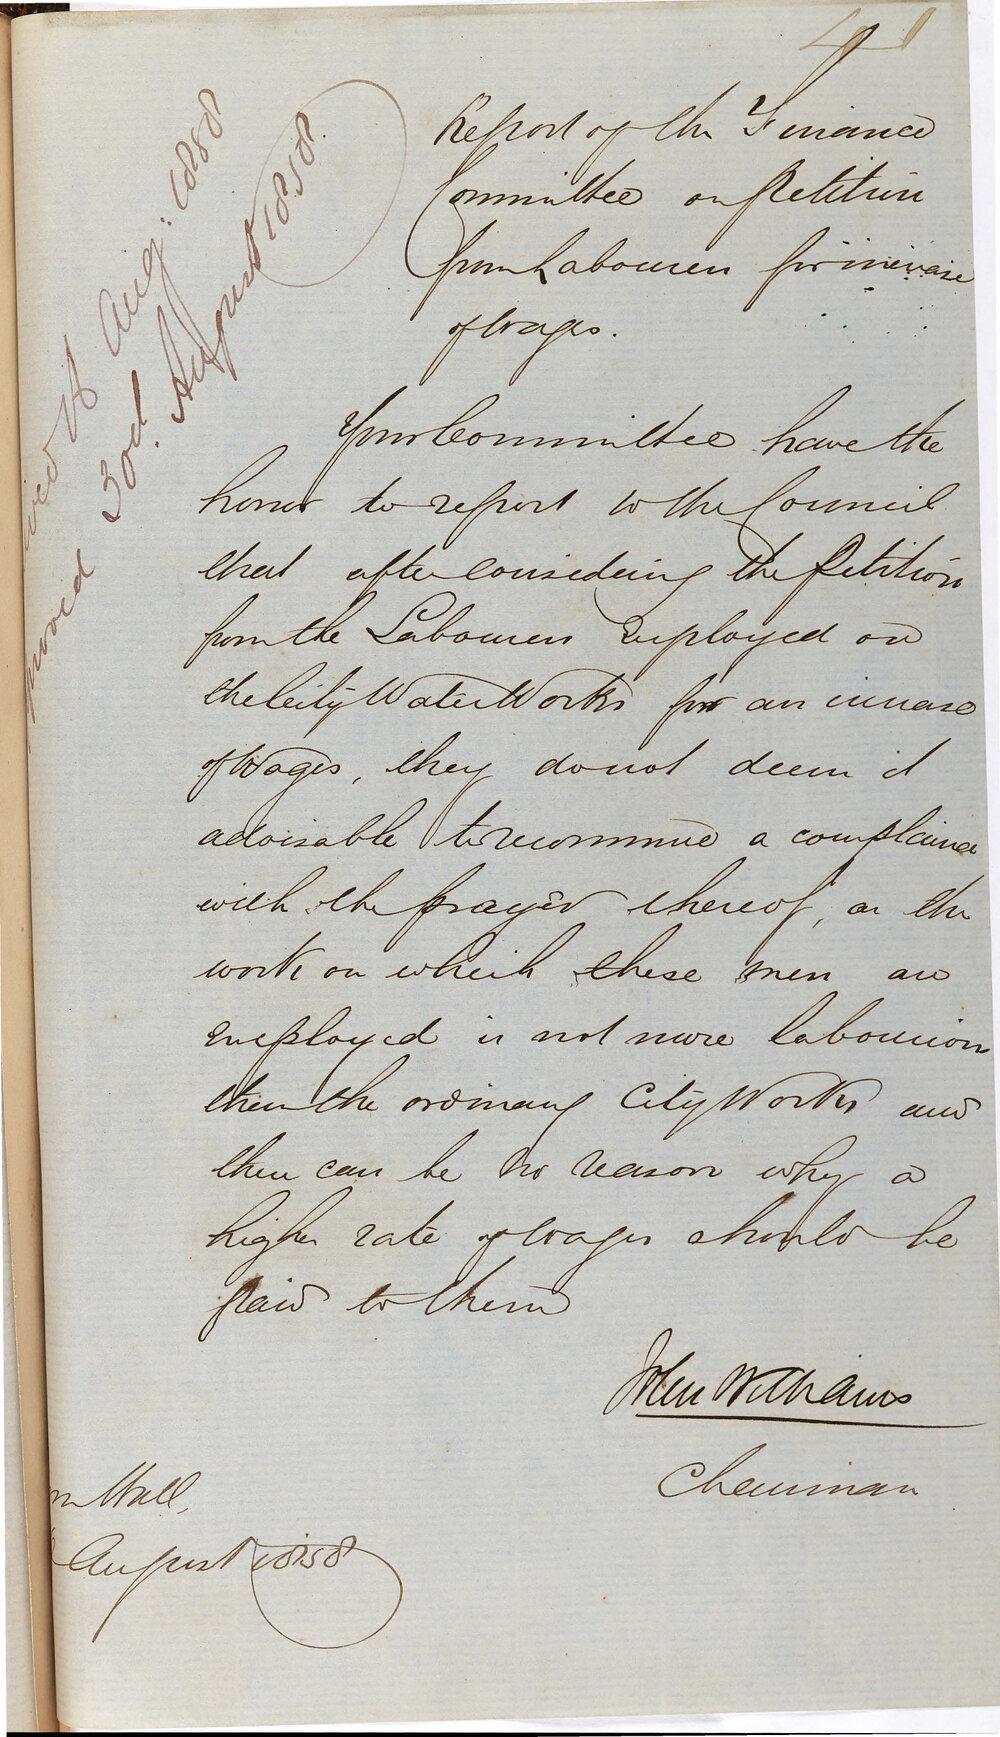 Report of the Finance
Committee on Petition
from Labourers for increase
of Wages.
Your Committee have the
honor to report to the Council
that after considering the Petition
from the Labourers employed on
the City Water Works for an increase
of Wages, they do not deem it
advisable to recommend a compliance
with the prayer thereof, as the
work on which these men are
employed is not more laborious
than the ordinary City Works and
there can be no reason why a
higher rate of wages should be
paid to them
John Williams
Chairman
Hall,
August 1858
Aug: 1858
30d. August 1858.